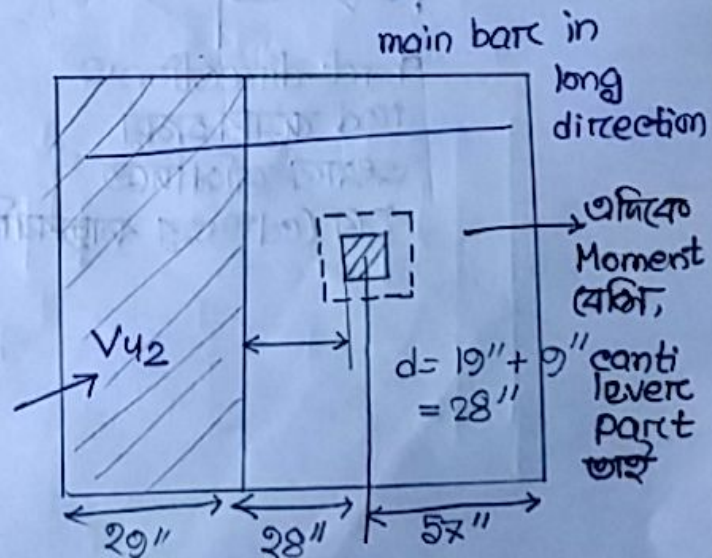 main barc in
long
dircection
এদিকে
Moment
বেশি,
canti
leverc
parct
তাই
Vu2
d= 19" + 9"
= 28"
29"
28"
57"